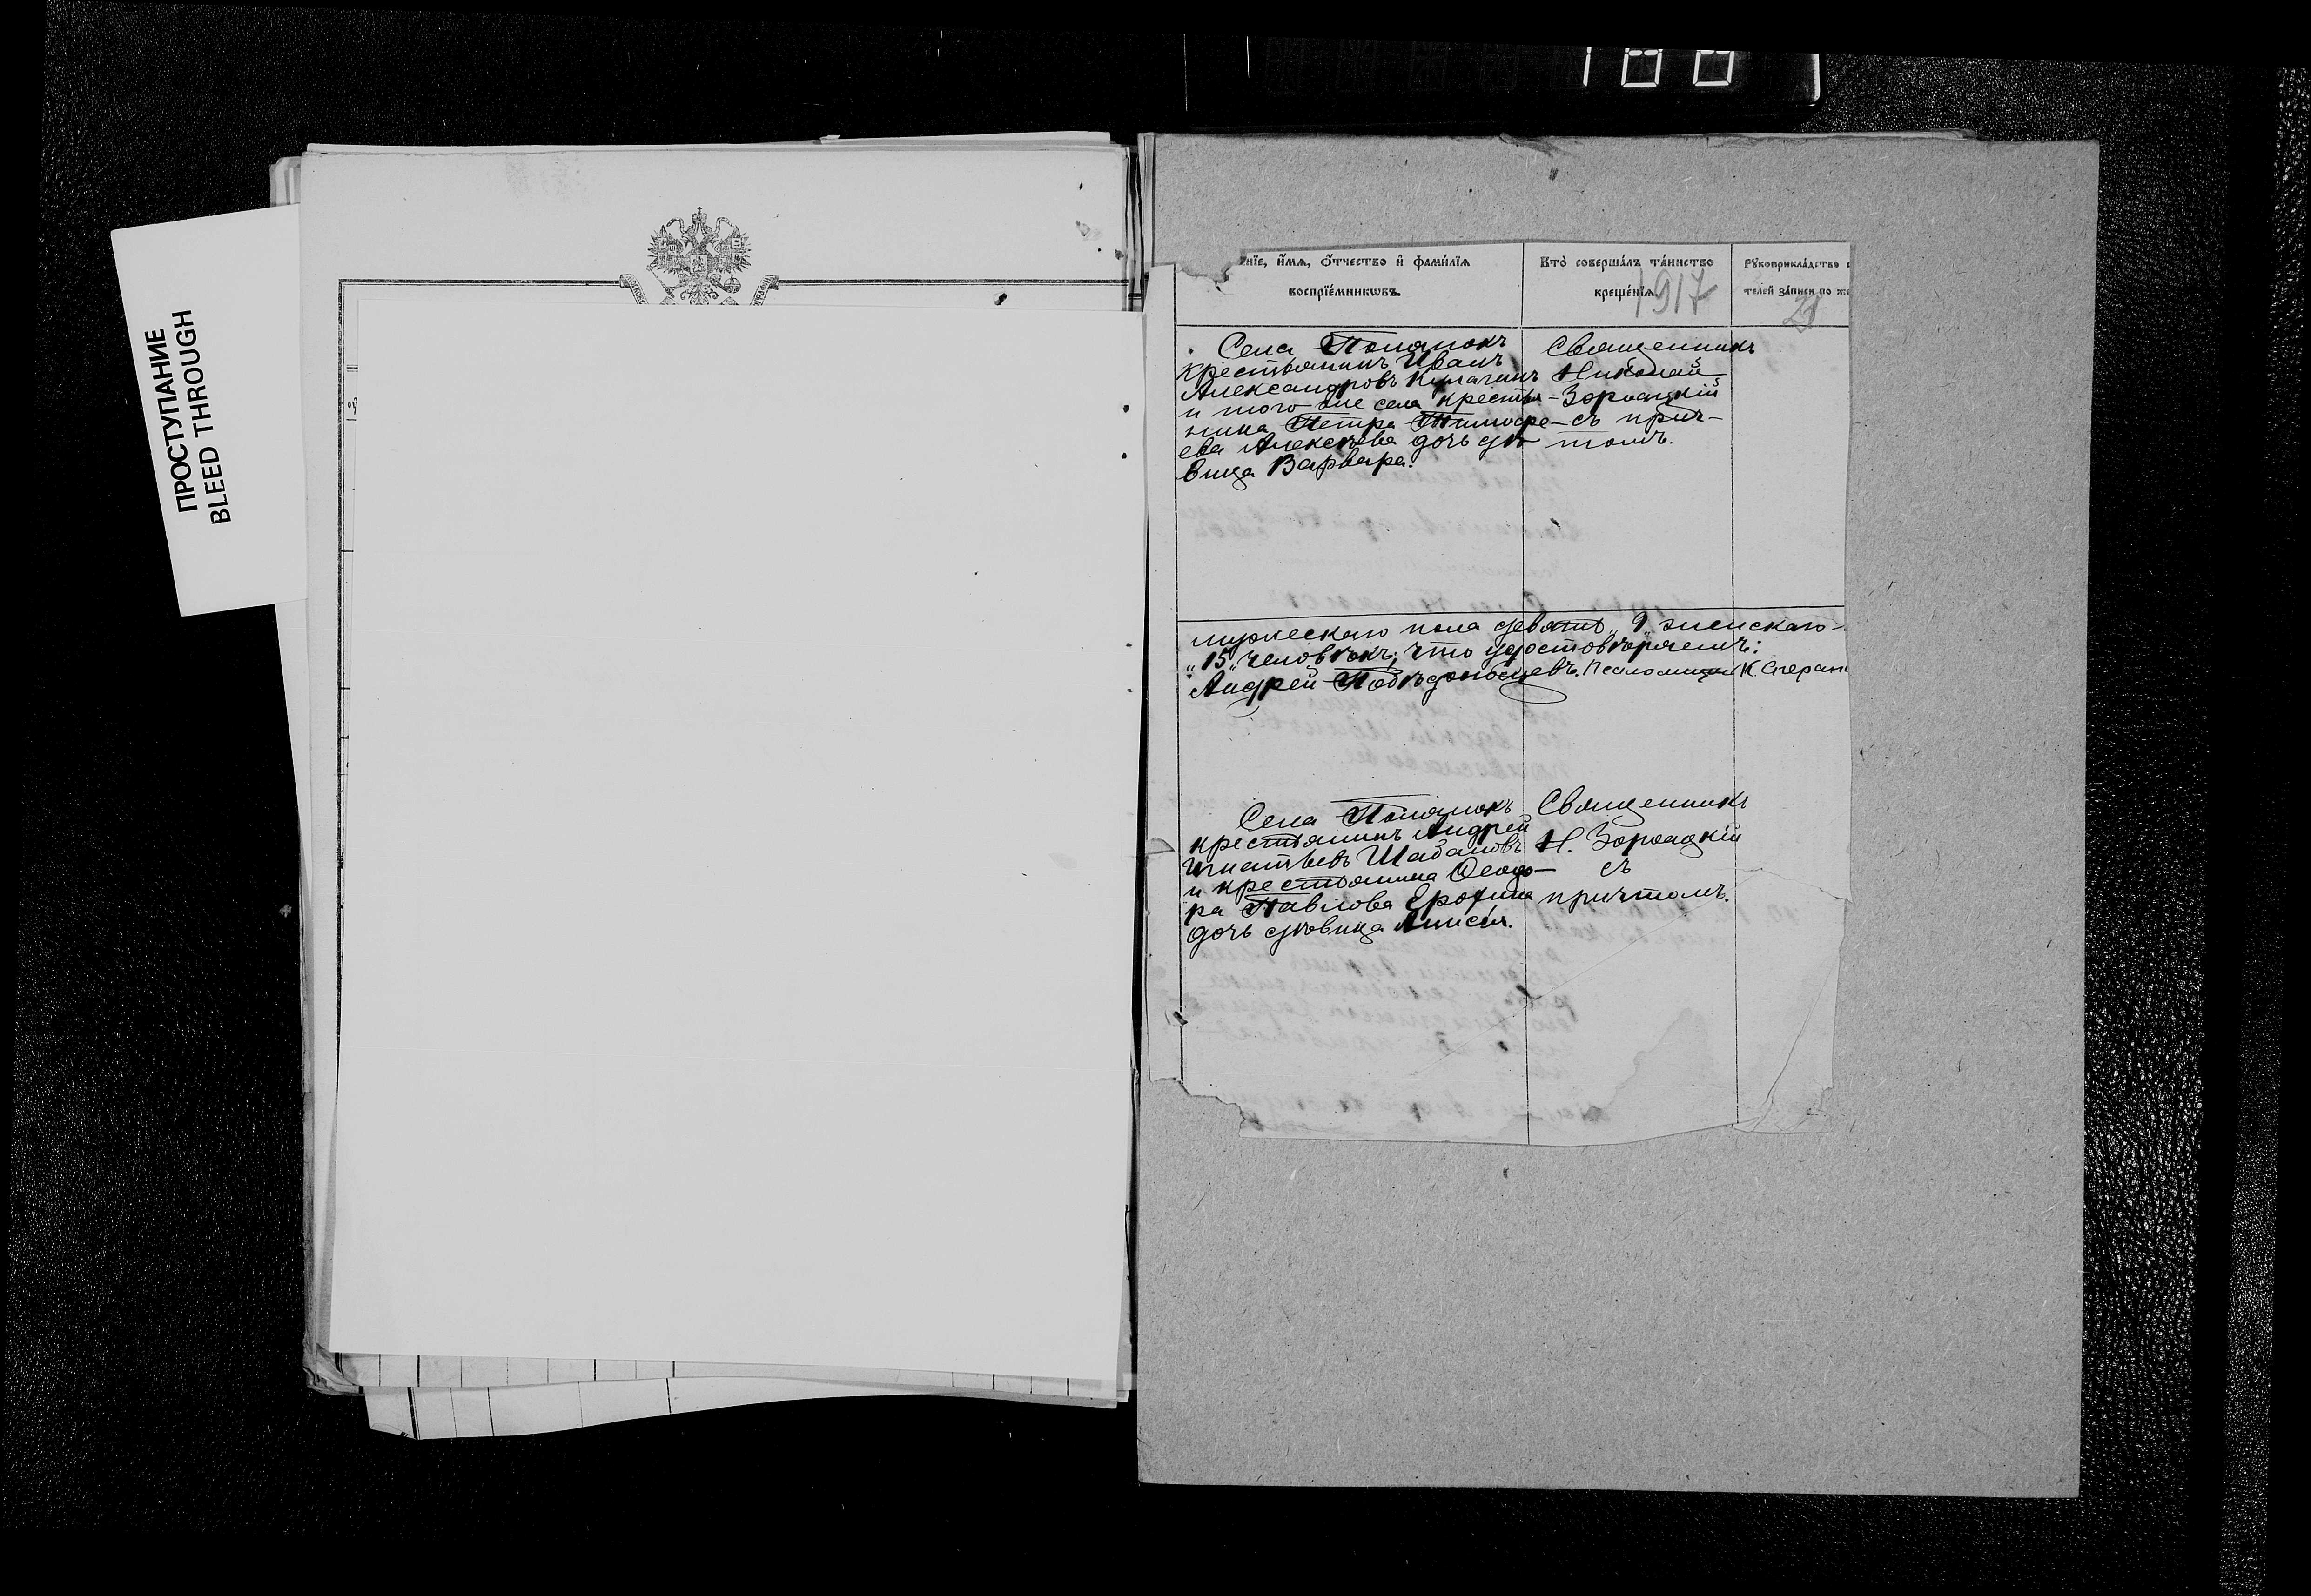 188
ПРОСТУПАНИЕ
BLEED THROUGH
нїе, и҆́мѧ, ѻ҆́тчество и҆ фамі́лїѧ
воспрїе́мникѡвъ.
Кто̀ соверша́лъ та́инство
креще́нїѧ
1917
Рꙋкоприкла́дство
телей за́писи по же
21
Села Полянокъ
крестьянинъ Иванъ
Александровъ
и того же села крестья-
нина Петра Тимофе-
ева Алексѣева дочь дѣ-
вица Варвара.
Священникъ
Николай
съ прич-
томъ.
мужескаго пола девять „9„ женскаго -
„15„ человѣкъ; что удостовѣряемъ:
Андрей Побѣдоносцевъ. Псаломщикъ К. Сперан
Села Полянокъ
крестьянинъ Андрей
Игнатьевъ Шабаловъ
и крестьянина Ѳеодо-
ра Павлова Ерофина
дочь дѣвица Анисія.
Священникъ
Н.
съ
причтомъ.